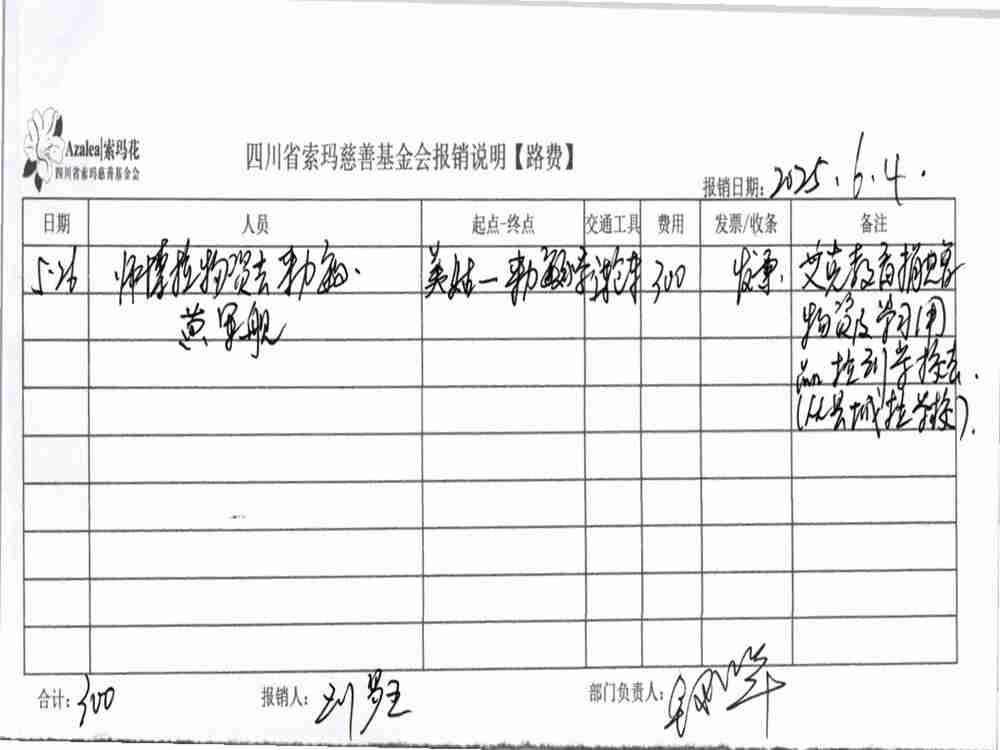 Azalea|索玛花
四川省索玛慈善基金会
四川省索玛慈善基金会报销说明【路费】
报销日期：2025.6.4.
日期 人员 起点-终点 交通工具 费用 发票/收条 备注
5.26 师博拉物资去勒敏. 美姑—勒敏 300 发票. 艾克教育捐赠
黄军舰 物资及学习用
品拉到学校去.
(从县城拉学校).
合计：300 报销人： 部门负责人：